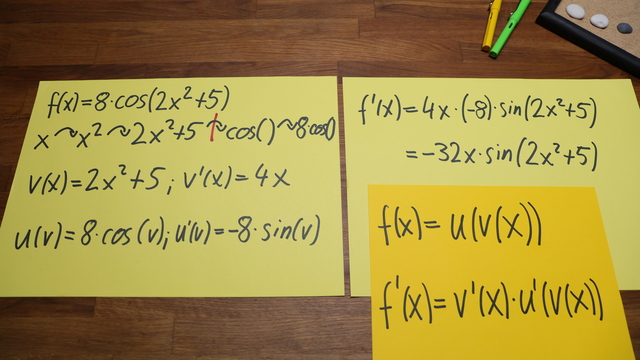 f(x)=8·cos(2x²+5)
x ~ x² ~ 2x²+5 ~ cos() ~ 8·cos()
v(x)=2x²+5; v'(x)=4x
u(v)=8·cos(v); u'(v)=-8·sin(v)
f'(x)=4x·(-8)·sin(2x²+5)
=-32x·sin(2x²+5)
f(x)=u(v(x))
f'(x)=v'(x)·u'(v(x))